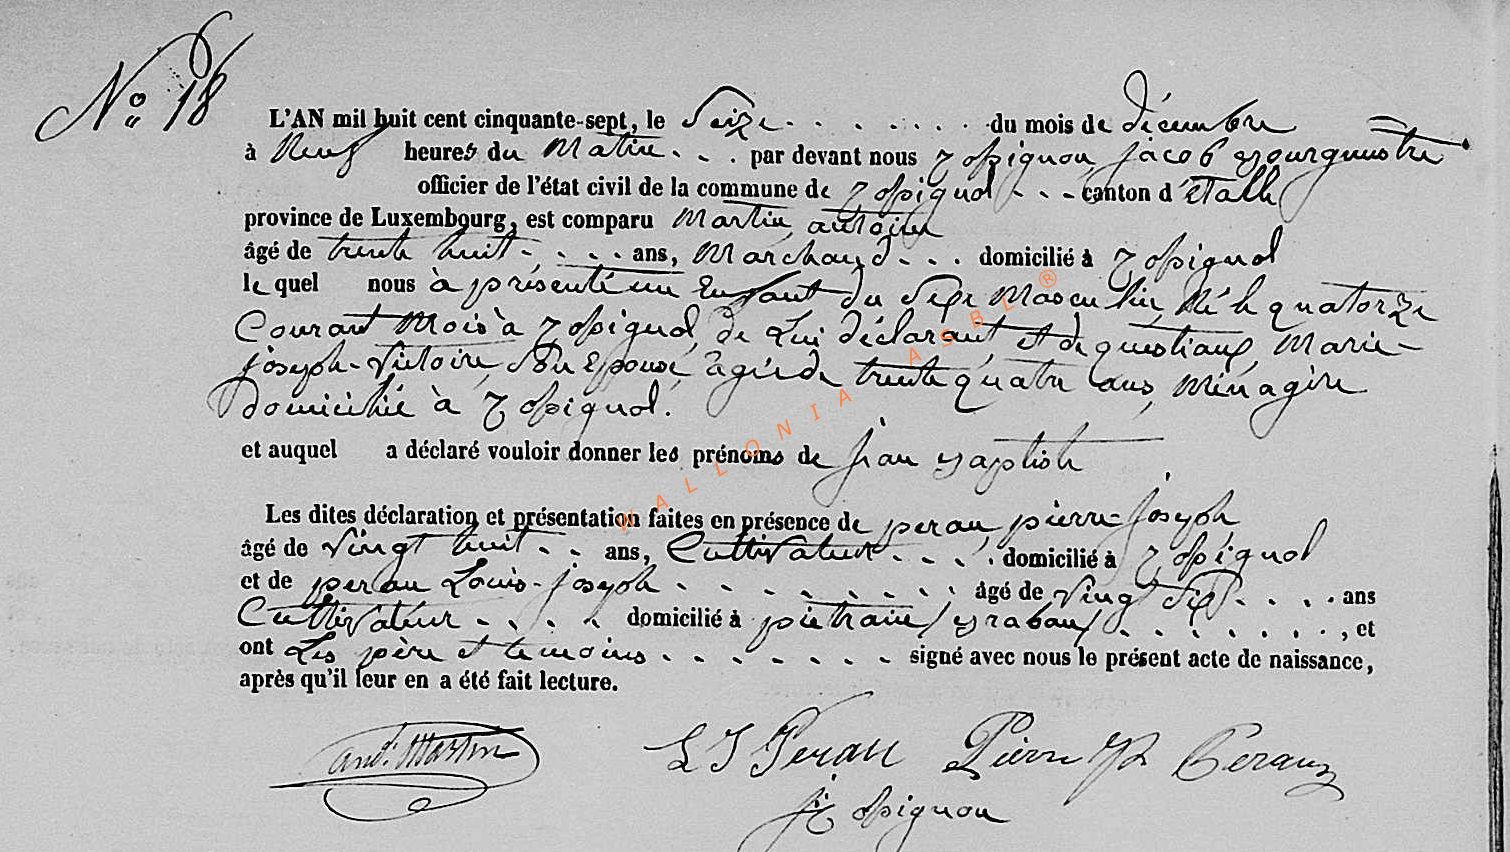 N° 18
L'AN mil huit cent cinquante-sept, le Seize . . . . . . . . du mois de décembre
à Neuf heures du Matin . . . par devant nous Jacob Bourguemstre
officier de l'état civil de la commune de . . . canton d'Etalle
province de Luxembourg, est comparu Martin, antoine
âgé de trente huit . . . . . ans, Marchand . . . domicilié à
le quel nous à présenté un Enfant du Sexe Masculin, Né le quatorze
Courant Mois à de Lui déclarant, et de questiaux, Marie-
joseph-Victoire, Son Epouse âgée de trente quatre ans, Ménagère
domiciliée à
WALLONIA ASBL ®
et auquel a déclaré vouloir donner les prénoms de jean Baptiste
Les dites déclaration et présentation faites en présence de perau, pierre-joseph
âgé de Vingt huit . . ans, Cultivateur . . . . . domicilié à
et de perau Louis-joseph . . . . . . . . . . âgé de Vingt Sept . . . . ans
Cultivateur . . . . . domicilié à pietrain / Braban / . . . . . . . . , et
ont Les père et temoins . . . . . . . . signé avec nous le présent acte de naissance,
après qu'il leur en a été fait lecture.
ant. Martin
L J Perau Pierre Perau